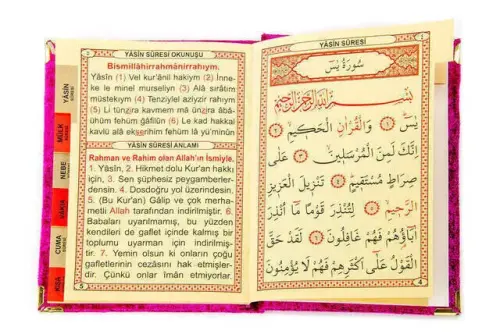 YÂSÎN SÛRESİ OKUNUŞU
Bismillâhirrahmânirrahıym.
Yâsîn (1) Vel kur'ânil hakiym (2) İnne-
ke le minel murseliyn (3) Alâ sırâtim
müstekıym (4) Tenziylel aziyzir rahıym
(5) Li tünzira kavmem mâ ünzira âbâ-
ühüm fehüm ğâfilûn (6) Le kad hakkal
kavlü alâ ekserihim fehüm lâ yü'minûn
YÂSÎN SÛRESİ ANLAMI
Rahman ve Rahim olan Allah'ın İsmiyle.
1. Yâsîn, 2. Hikmet dolu Kur'an hakkı
için, 3. Sen şüphesiz peygamberler-
densin. 4. Dosdoğru yol üzerindesin.
5. (Bu Kur'an) Gâlip ve çok merha-
metli Allah tarafından indirilmiştir. 6.
Babaları uyarılmamış, bu yüzden
kendileri de gaflet içinde kalmış bir
toplumu uyarman için indirilmiş-
tir. 7. Yemin olsun ki onların çoğu
gafletlerinin cezasını hak etmişler-
dir. Çünkü onlar îman etmiyorlar.
5
YÂSÎN
MÜLK
NEBE
VAKIA
CUMA
KISA
YÂSÎN SÛRESİ
سُورَةُ يٰسٓ
بِسْمِ اللّٰهِ الرَّحْمٰنِ الرَّحِيمِ
يٰسٓ ﴿١﴾ وَالْقُرْاٰنِ الْحَكِيمِ ﴿٢﴾
اِنَّكَ لَمِنَ الْمُرْسَلِينَ ﴿٣﴾ عَلٰى
صِرَاطٍ مُسْتَقِيمٍ ﴿٤﴾ تَنْزِيلَ الْعَزِيزِ
الرَّحِيمِ ﴿٥﴾ لِتُنْذِرَ قَوْمًا مَٓا اُنْذِرَ
اٰبَٓاؤُهُمْ فَهُمْ غَافِلُونَ ﴿٦﴾ لَقَدْ حَقَّ
الْقَوْلُ عَلٰٓى اَكْثَرِهِمْ فَهُمْ لَا يُؤْمِنُونَ
4